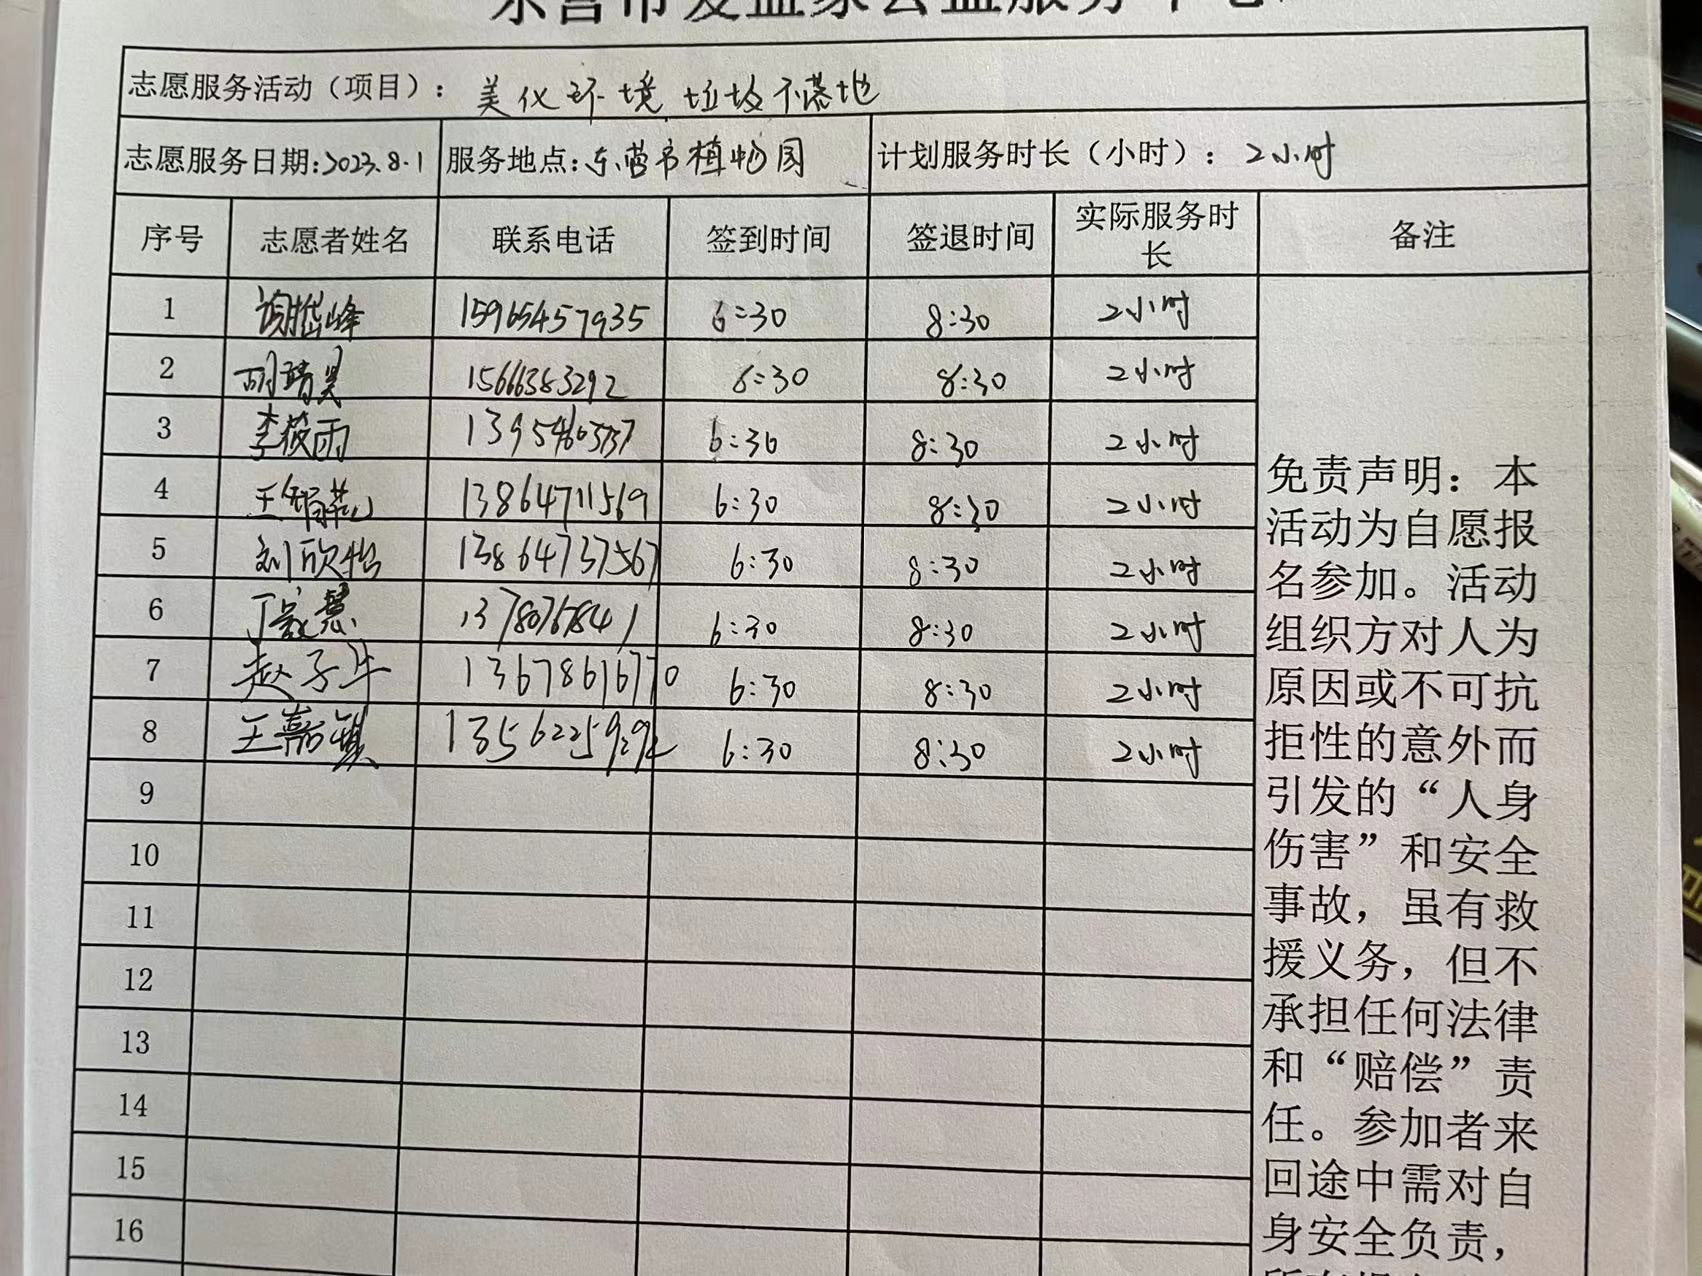 东营市爱益家公益服务中心
志愿服务活动（项目）： 美化环境 垃圾不落地
志愿服务日期:2023.8.1 服务地点:东营市植物园 计划服务时长（小时）： 2小时
序号 志愿者姓名 联系电话 签到时间 签退时间 实际服务时长 备注
1 15965457935 6:30 8:30 2小时
2 胡靖昊 15666383292 6:30 8:30 2小时
3 李筱雨 6:30 8:30 2小时
4 13864711569 6:30 8:30 2小时
5 刘欣怡 13864737567 6:30 8:30 2小时
6 13780768441 6:30 8:30 2小时
7 赵子牛 13678616770 6:30 8:30 2小时
8 王嘉镇 13562259292 6:30 8:30 2小时
9
10
11
12
13
14
15
16
免责声明：本
活动为自愿报
名参加。活动
组织方对人为
原因或不可抗
拒性的意外而
引发的“人身
伤害”和安全
事故，虽有救
援义务，但不
承担任何法律
和“赔偿”责
任。参加者来
回途中需对自
身安全负责，